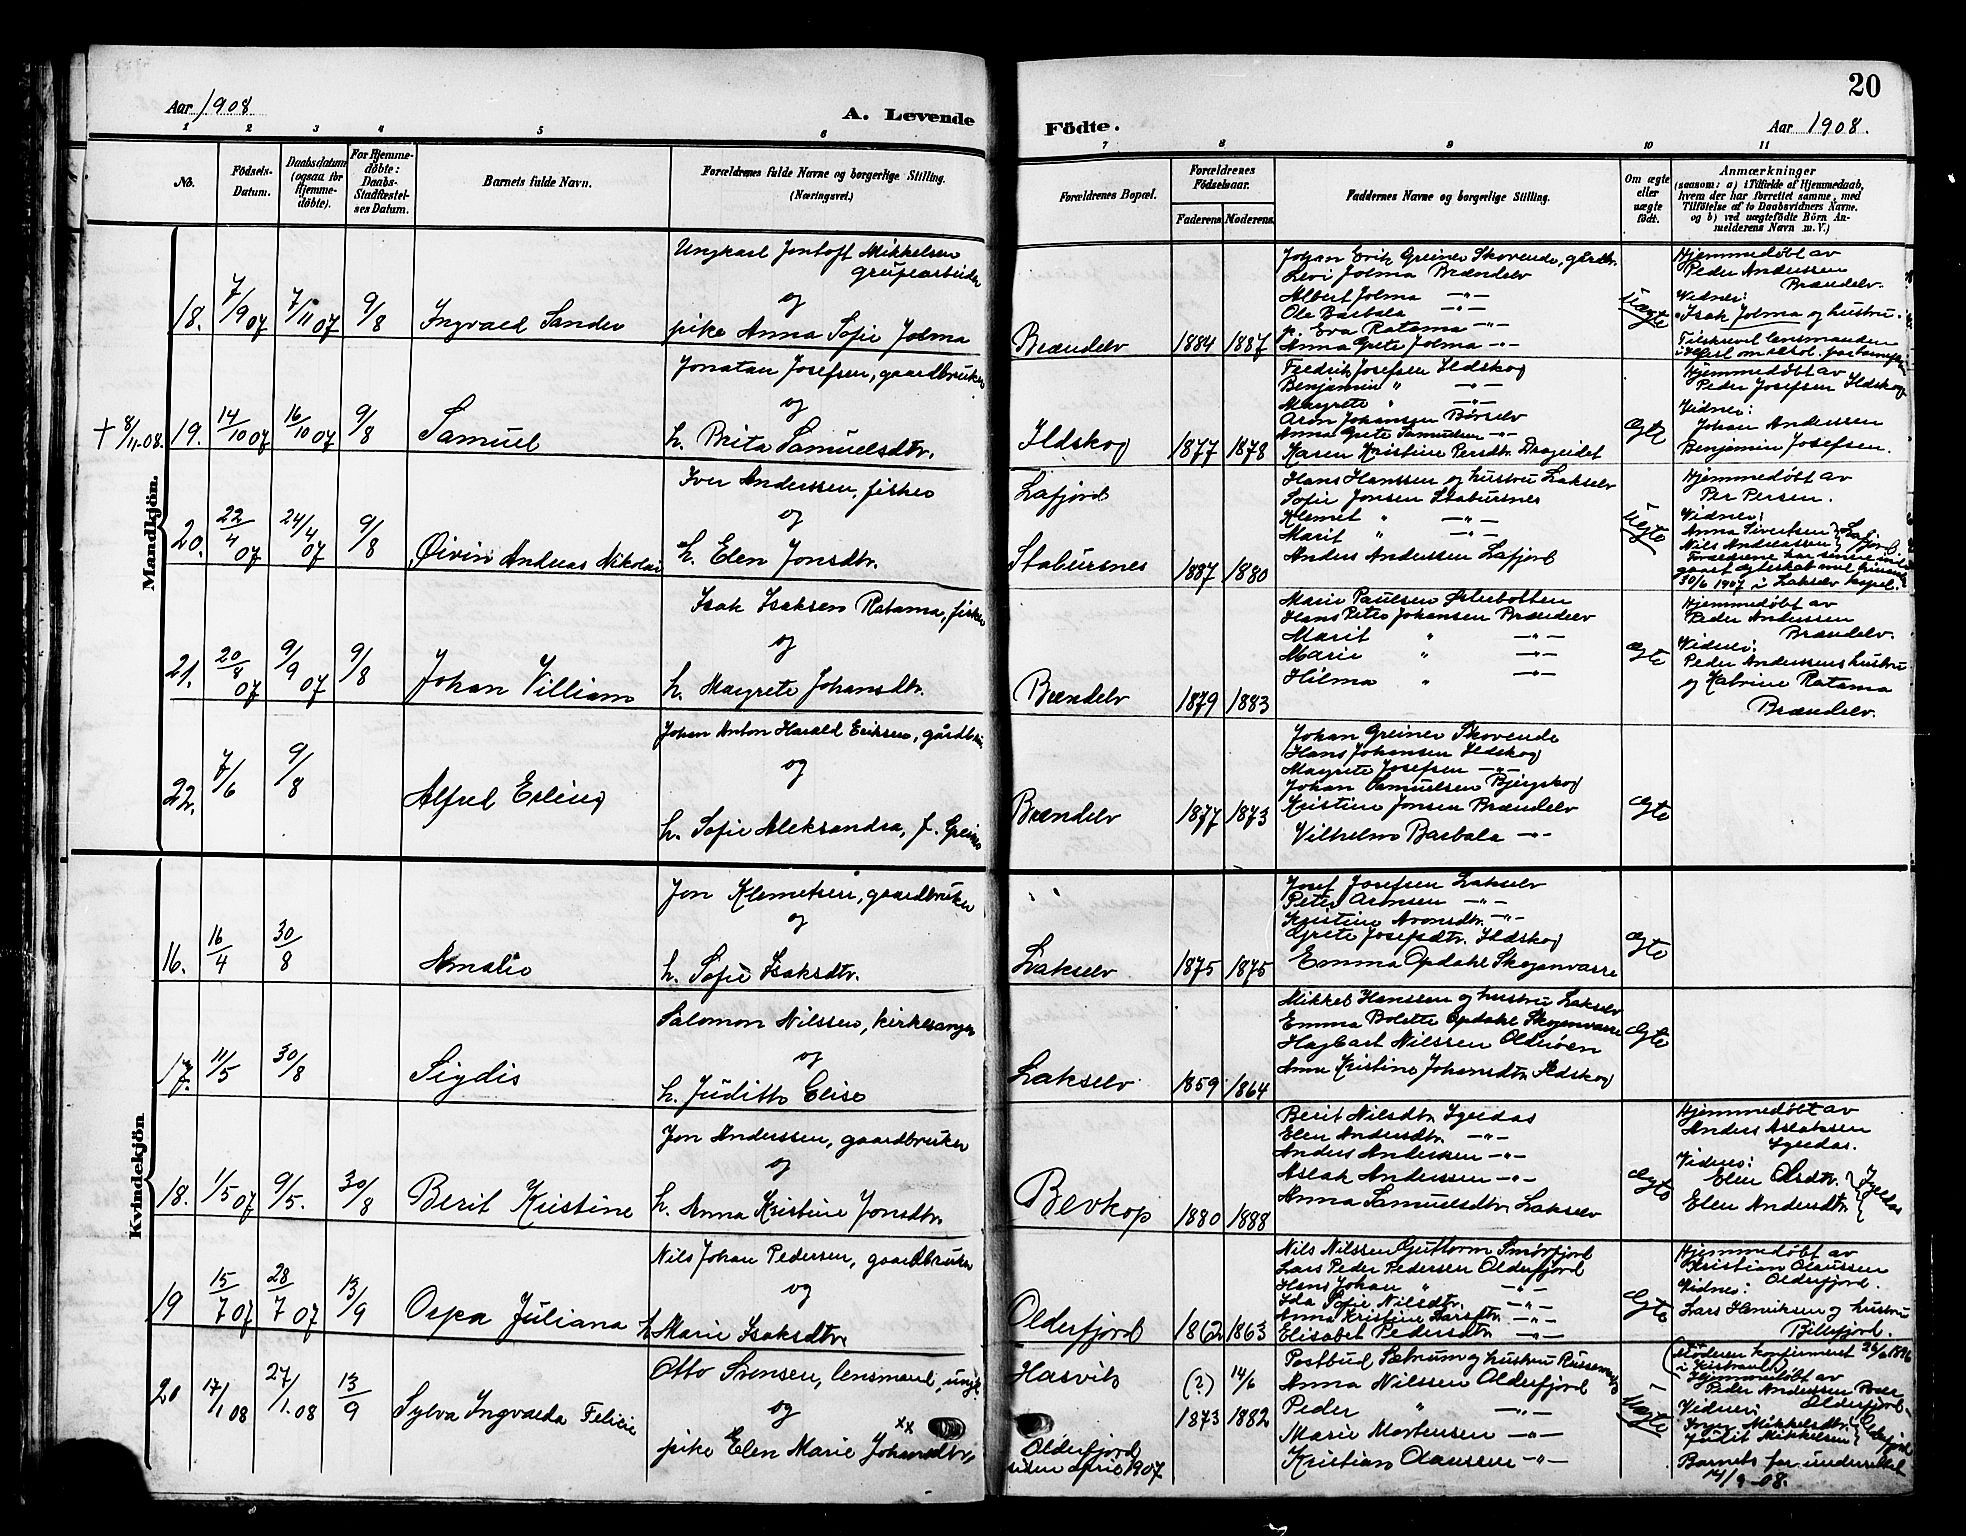 20
Aar 1908.
A. Levende
Födte.
Aar 1908.
1 2 3 4 5 6 7 8 9 10 11
No.
Födsels-
Datum.
Daabsdatum
(ogsaa for
Hjemme-
döbte).
For Hjemme-
döbte:
Daabs-
Stadfæstel-
ses Datum.
Barnets fulde Navn.
Forældrenes fulde Navne og borgerlige Stilling.
(Næringsvei.)
Forældrenes Bopæl.
Forældrenes
Födselsaar.
Faderens. Moderens.
Faddernes Navne og borgerlige Stilling.
Om ægte
eller
uægte
födt.
Anmærkninger
(saasom: a) i Tilfælde af Hjemmedaab,
hvem der har forrettet samme, med
Tilföielse af to Daabsvidners Navne.
og b) ved uægtefödte Börn An-
melderens Navn m. V.)
Mandkjön.
18. 7/9 07 7/11 07 9/8 Ingvald Sander
Ungkarl Jentoft Mikkelsen
grubearbeider
og
pike Anna Sofie Jolma
Brændelv 1884 1887
Johan Erik Greiner Skovende, gårdbr.
Levi Jolma Brændelv
Albert Jolma —"—
Ola Barbala —"—
p. Eva Ratama —"—
Anna Grete Jolma —"—
Uægte
Hjemmedøbt av
Peder Anderssen
Brændelv.
Vidner:
Isak Jolma og hustru.
+ 8/11-08. 19. 14/10 07 16/10 07 9/8 Samuel
Jonatan Josefsen, gaardbruker
og
h. Brita Samuelsdtr.
Ildskog 1877 1878
Fredrik Josefsen Ildskog
Benjamin " —"—
Margrete " —"—
Aron Johansen Børselv
Anna Grete Samuelsen —"—
Karen Kristine Persdtr. Drageidet
Ægte
Hjemmedøbt av
Peder Josefsen Ildskog
Vidner:
Johan Anderssen
Benjamin Josefsen.
20. 22/4 07 24/4 07 9/8 Øivin Andreas Nikolai
Iver Anderssen, fisker
og
h. Elen Jonsdtr.
Lafjord
Stabursnes 1887 1880
Hans Hanssen og hustru Lakselv
Sofie Jonsen Stabursnes
Klemet " —"—
Marit " —"—
Anders Anderssen Lafjord
Uegte
Hjemmedøbt av
Per Persen.
Vidner:
Anna Sivertsen
Nils Anderssen } Lafjord.
Forældrene har senere ind-
gaaet ægteskab med hinanden
30/6 1907 i Lakselv kapel.
21. 20/8 07 9/9 07 9/8 Johan Villiam
Isak Isaksen Ratama, fisker
og
h. Margrete Johansdtr.
Brændelv 1879 1883
Marie Paulsen Østerbotten
Hans Peter Johansen Brændelv
Marit " —"—
Marie " —"—
Hilma " —"—
Ægte
Hjemmedøbt av
Peder Anderssen
Brændelv.
Vidner:
Peder Anderssens hustru
og Katrine Ratama
Brændelv.
22. 7/6 9/8 Alfred Erling
Johan Anton Harald Eriksen, gårdbr.
og
h. Sofie Aleksandra, f. Greiner
Brændelv 1877 1873
Johan Greiner Skovende
Hans Johansen Ildskog
Margrete Josefsen —"—
Johan Samuelsen Bjergskog
Kristine Jonsen Brændelv
Vilhelm Barbala —"—
Ægte
Kvindekjön
16. 16/4 30/8 Amalie
Jon Klemetsen, gaardbruker
og
h. Sofie Isaksdtr.
Lakselv 1875 1875
Josef Josefsen Lakselv
Peter Aronsen —"—
Kristine Aronsdtr. —"—
Grete Josefsdtr. Ildskog
Emma Opdahl Skoganvarre
Ægte
17. 11/5 30/8 Sigdis
Salomon Nilssen, kirkesanger
og
h. Juditte Elise
Lakselv 1859 1864
Mikkel Hanssen og hustru Lakselv
Emma Bolette Opdahl Skoganvarre
Hagbart Nilssen Olderøen
Anna Kristine Johansdtr. Ildskog
Ægte
18. 1/5 07 9/5. 30/8 Berit Kristine
Jon Anderssen, gaardbruker
og
h. Anna Kristine Jonsdtr.
Bevkop 1880 1888
Berit Nilsdtr. Igeldas
Elen Andersdtr. —"—
Anders Anderssen —"—
Aslak Anderssen —"—
Anna Samuelsdtr. Lakselv
Ægte
Hjemmedøbt av
Anders Aslaksen
Igeldas.
Vidner:
Elen Olsdtr.
Elen Andersdtr. } Igeldas
19 15/7 07 28/7 07 13/9 Oepa Juliana
Nils Johan Pedersen, gaardbruker
og
h. Marie Isaksdtr.
Olderfjord 1862 1863
Nils Nilssen Guttorm Smørfjord
Lars Peder Pedersen Olderfjord
Hans Johan " —"—
Ida Sofie Nilsdtr. —"—
Anna Kristine Larsdtr. —"—
Elisabet Pedersdtr. —"—
Ægte
Hjemmedøbt av
Kristian Olaussen
Olderfjord.
Vidner:
Lars Henriksen og hustru
Billefjord.
20 17/1 08 27/1.08 13/9 Sylva Ingvarda Felicie
Otto Svensen, lensmand, ungk.
og
pike Elen Marie Johansdtr. xx
Hasvik (?) 14/6
1873 1882
Olderfjord
siden april 1907
Postbud Sætrum og hustru
Anna Nilssen Olderfjord
Peder " —"—
Marie Mortensen —"—
Kristian Olaussen —"—
Uægte
(Moderen konfirmeret 26/6 1896
i Kistrand)
Hjemmedøbt av
Peder Anderssen
Olderfjord.
Vidner:
Inger Mikkelsdtr.
Judit Mikkelsen } Olderfjord
Barnets far underrettet
14/9-08.